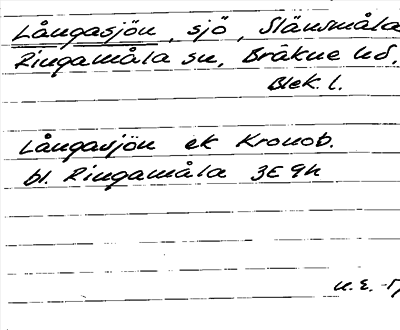 Långasjön, sjö, Slänsmåla
Ringamåla sn, Bräkne hd.
Blek. l.
Långasjön ek Kronob.
bl. Ringamåla 3E 9h